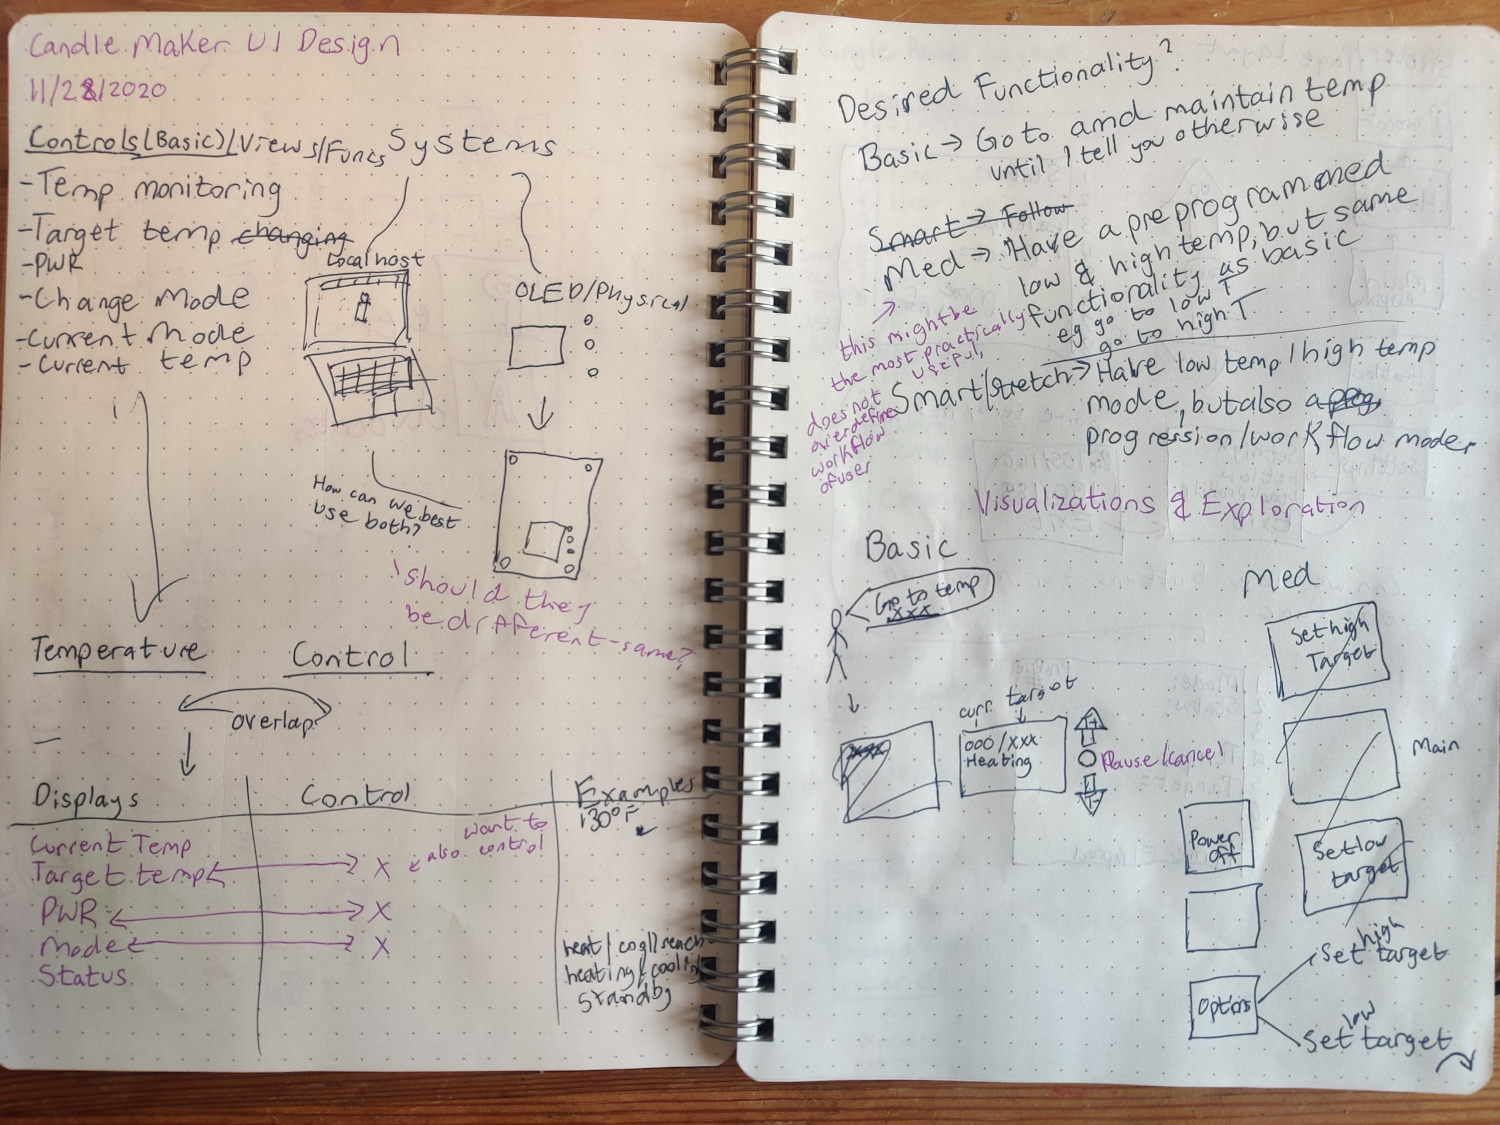 Candle Maker UI Design
11/28/2020
Controls(Basic)/Views/Funcs
-Temp monitoring
-Target temp changing
-PWR
-Change Mode
-Current Mode
-Current temp
Systems
Localhost
OLED/Physical
How can we best
use both?
should they
be different-same?
Temperature
Control
overlap
Displays
Control
Examples
130°F
Current Temp
want to
also control
Target temp
X
PWR
X
Mode
X
Status
heat/cool/reach
heating/cooling
standby
Desired Functionality?
Basic→ Go to and maintain temp
until I tell you otherwise
Smart→ Follow
Med→ Have a preprogrammed
low & high temp, but same
functionality as basic
eg go to low T
go to high T
this might be
the most practically
useful,
does not
overdefine
workflow
of user
Smart/stretch→ Have low temp/high temp
mode, but also a prog
progression/workflow mode.
Visualizations & Exploration
Basic
Go to temp
xxx
curr target
000/xxx
Heating
+
Pause/cancel
-
Med
Set high
Target
Main
Set low
target
Power
off
Options
Set high target
Set low target